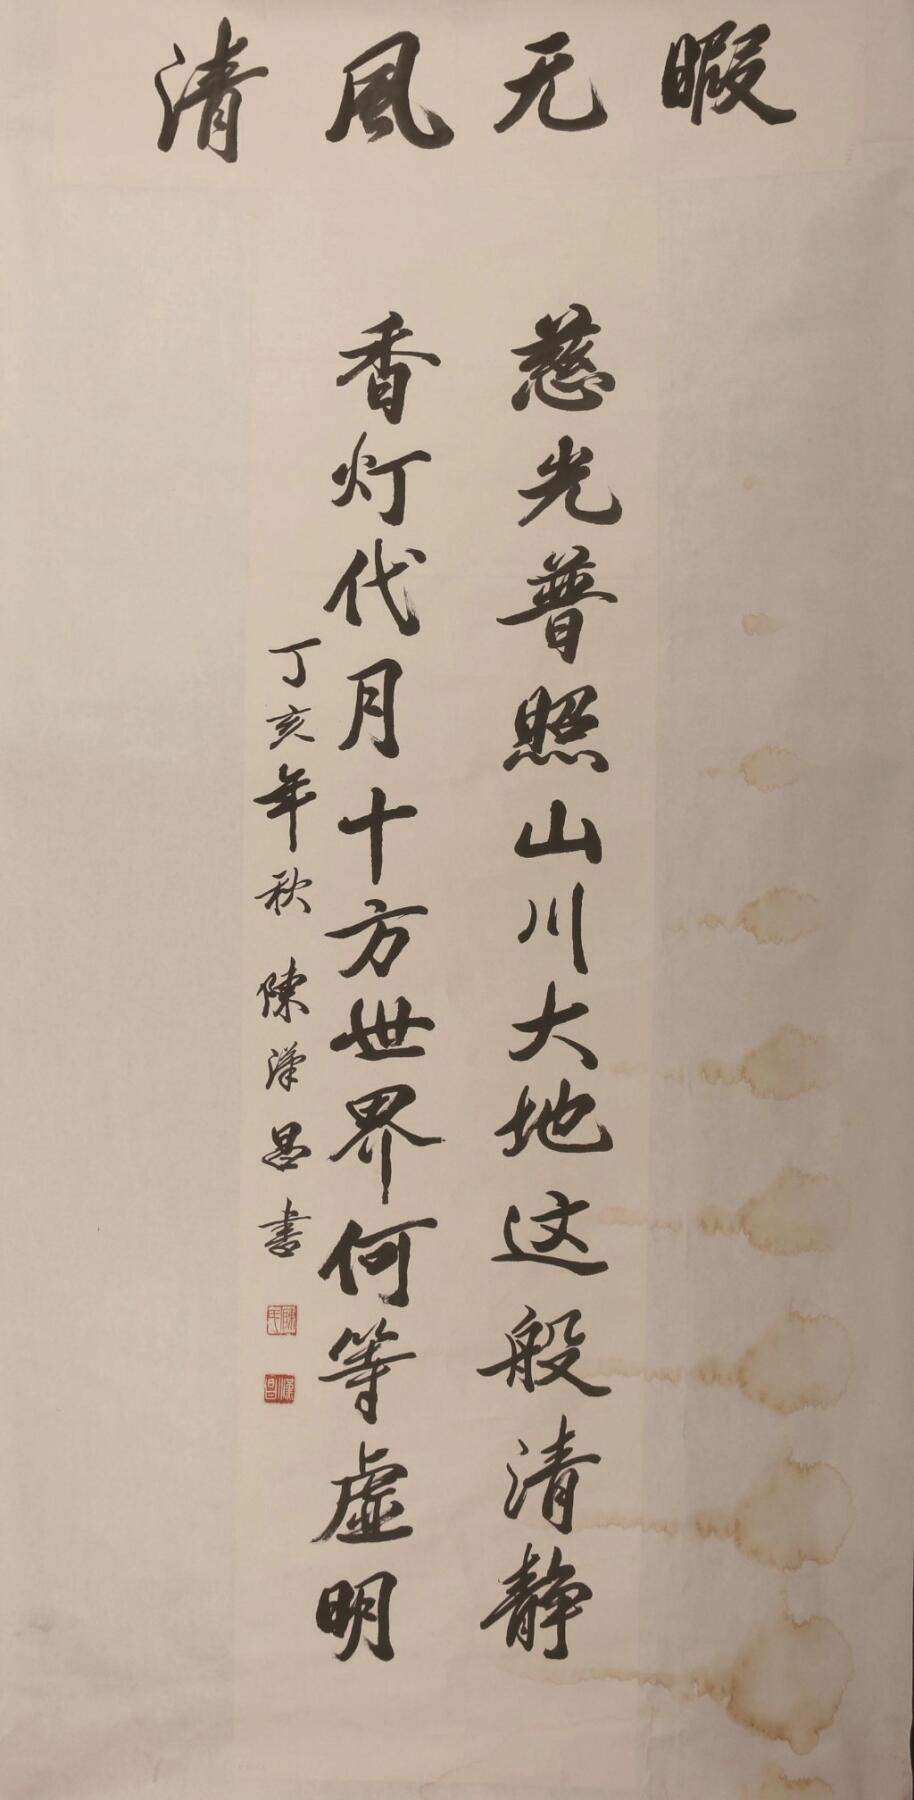 清風无暇
慈光普照山川大地这般清静
香灯代月十方世界何等虚明
丁亥年秋 陳漢昌書
漢昌